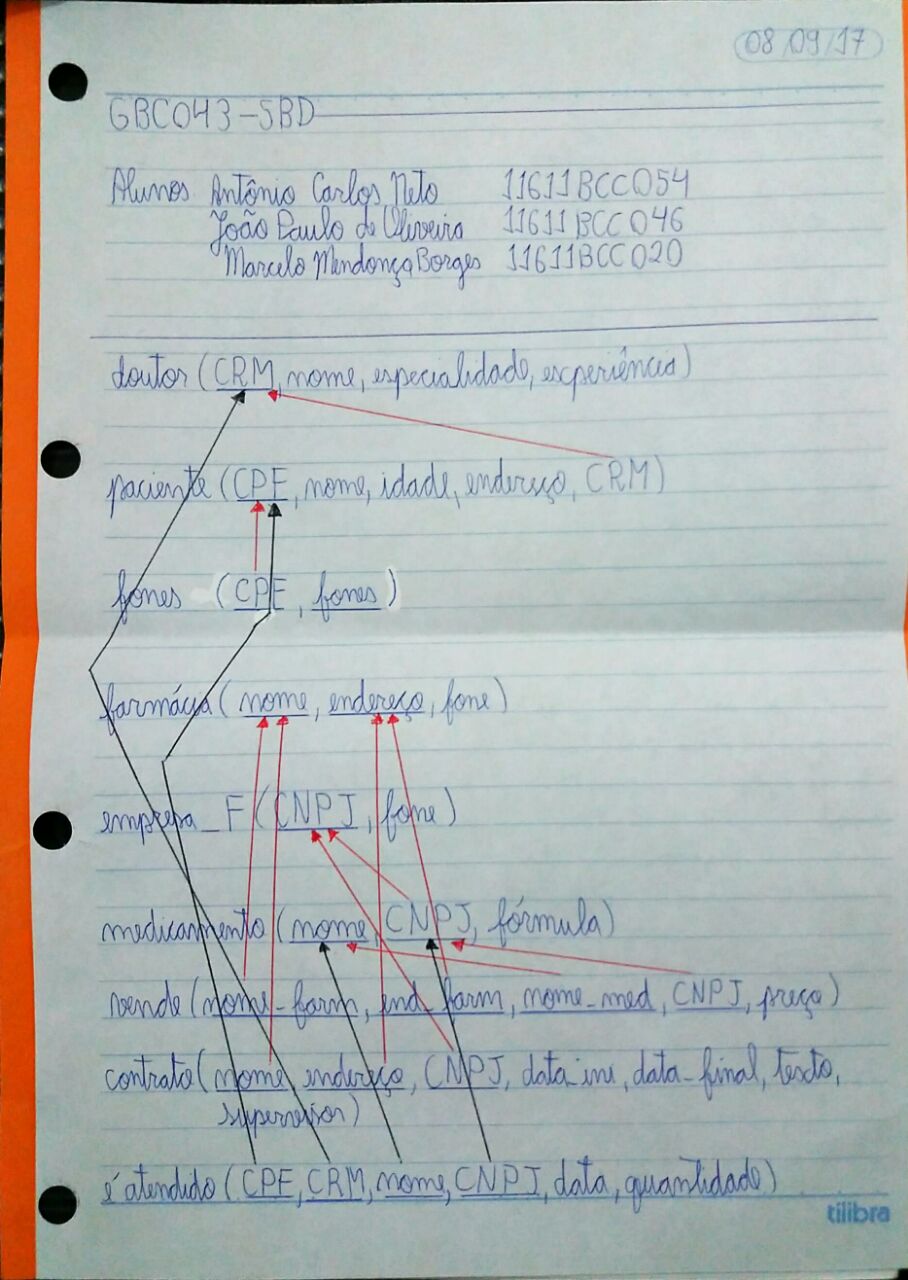 08/09/17
GBC043-SBD
Alunos Antônio Carlos Neto 11611BCC054
João Paulo de Oliveira 11611BCC046
Marcelo Mendonça Borges 11611BCC020
doutor (CRM, nome, especialidade, experiência)
paciente (CPF, nome, idade, endereço, CRM)
fones (CPF, fones)
farmácia (nome, endereço, fone)
empresa_F (CNPJ, fone)
medicamento (nome, CNPJ, fórmula)
vende (nome-farm, end_farm, nome_med, CNPJ, preço)
contrato (nome, endereço, CNPJ, data_ini, data-final, texto,
supervisor)
é atendido (CPF, CRM, nome, CNPJ, data, quantidade)
tilibra